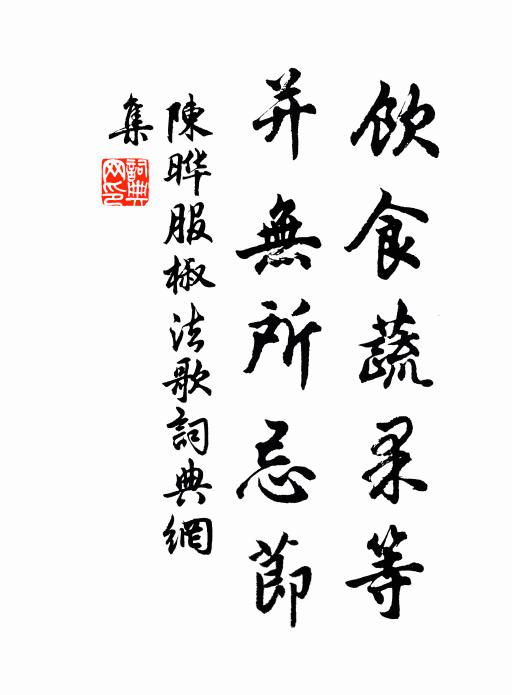 飲食蔬果等
并無所忌節
陳曄服椒法歌詞典網
集
詞典网印